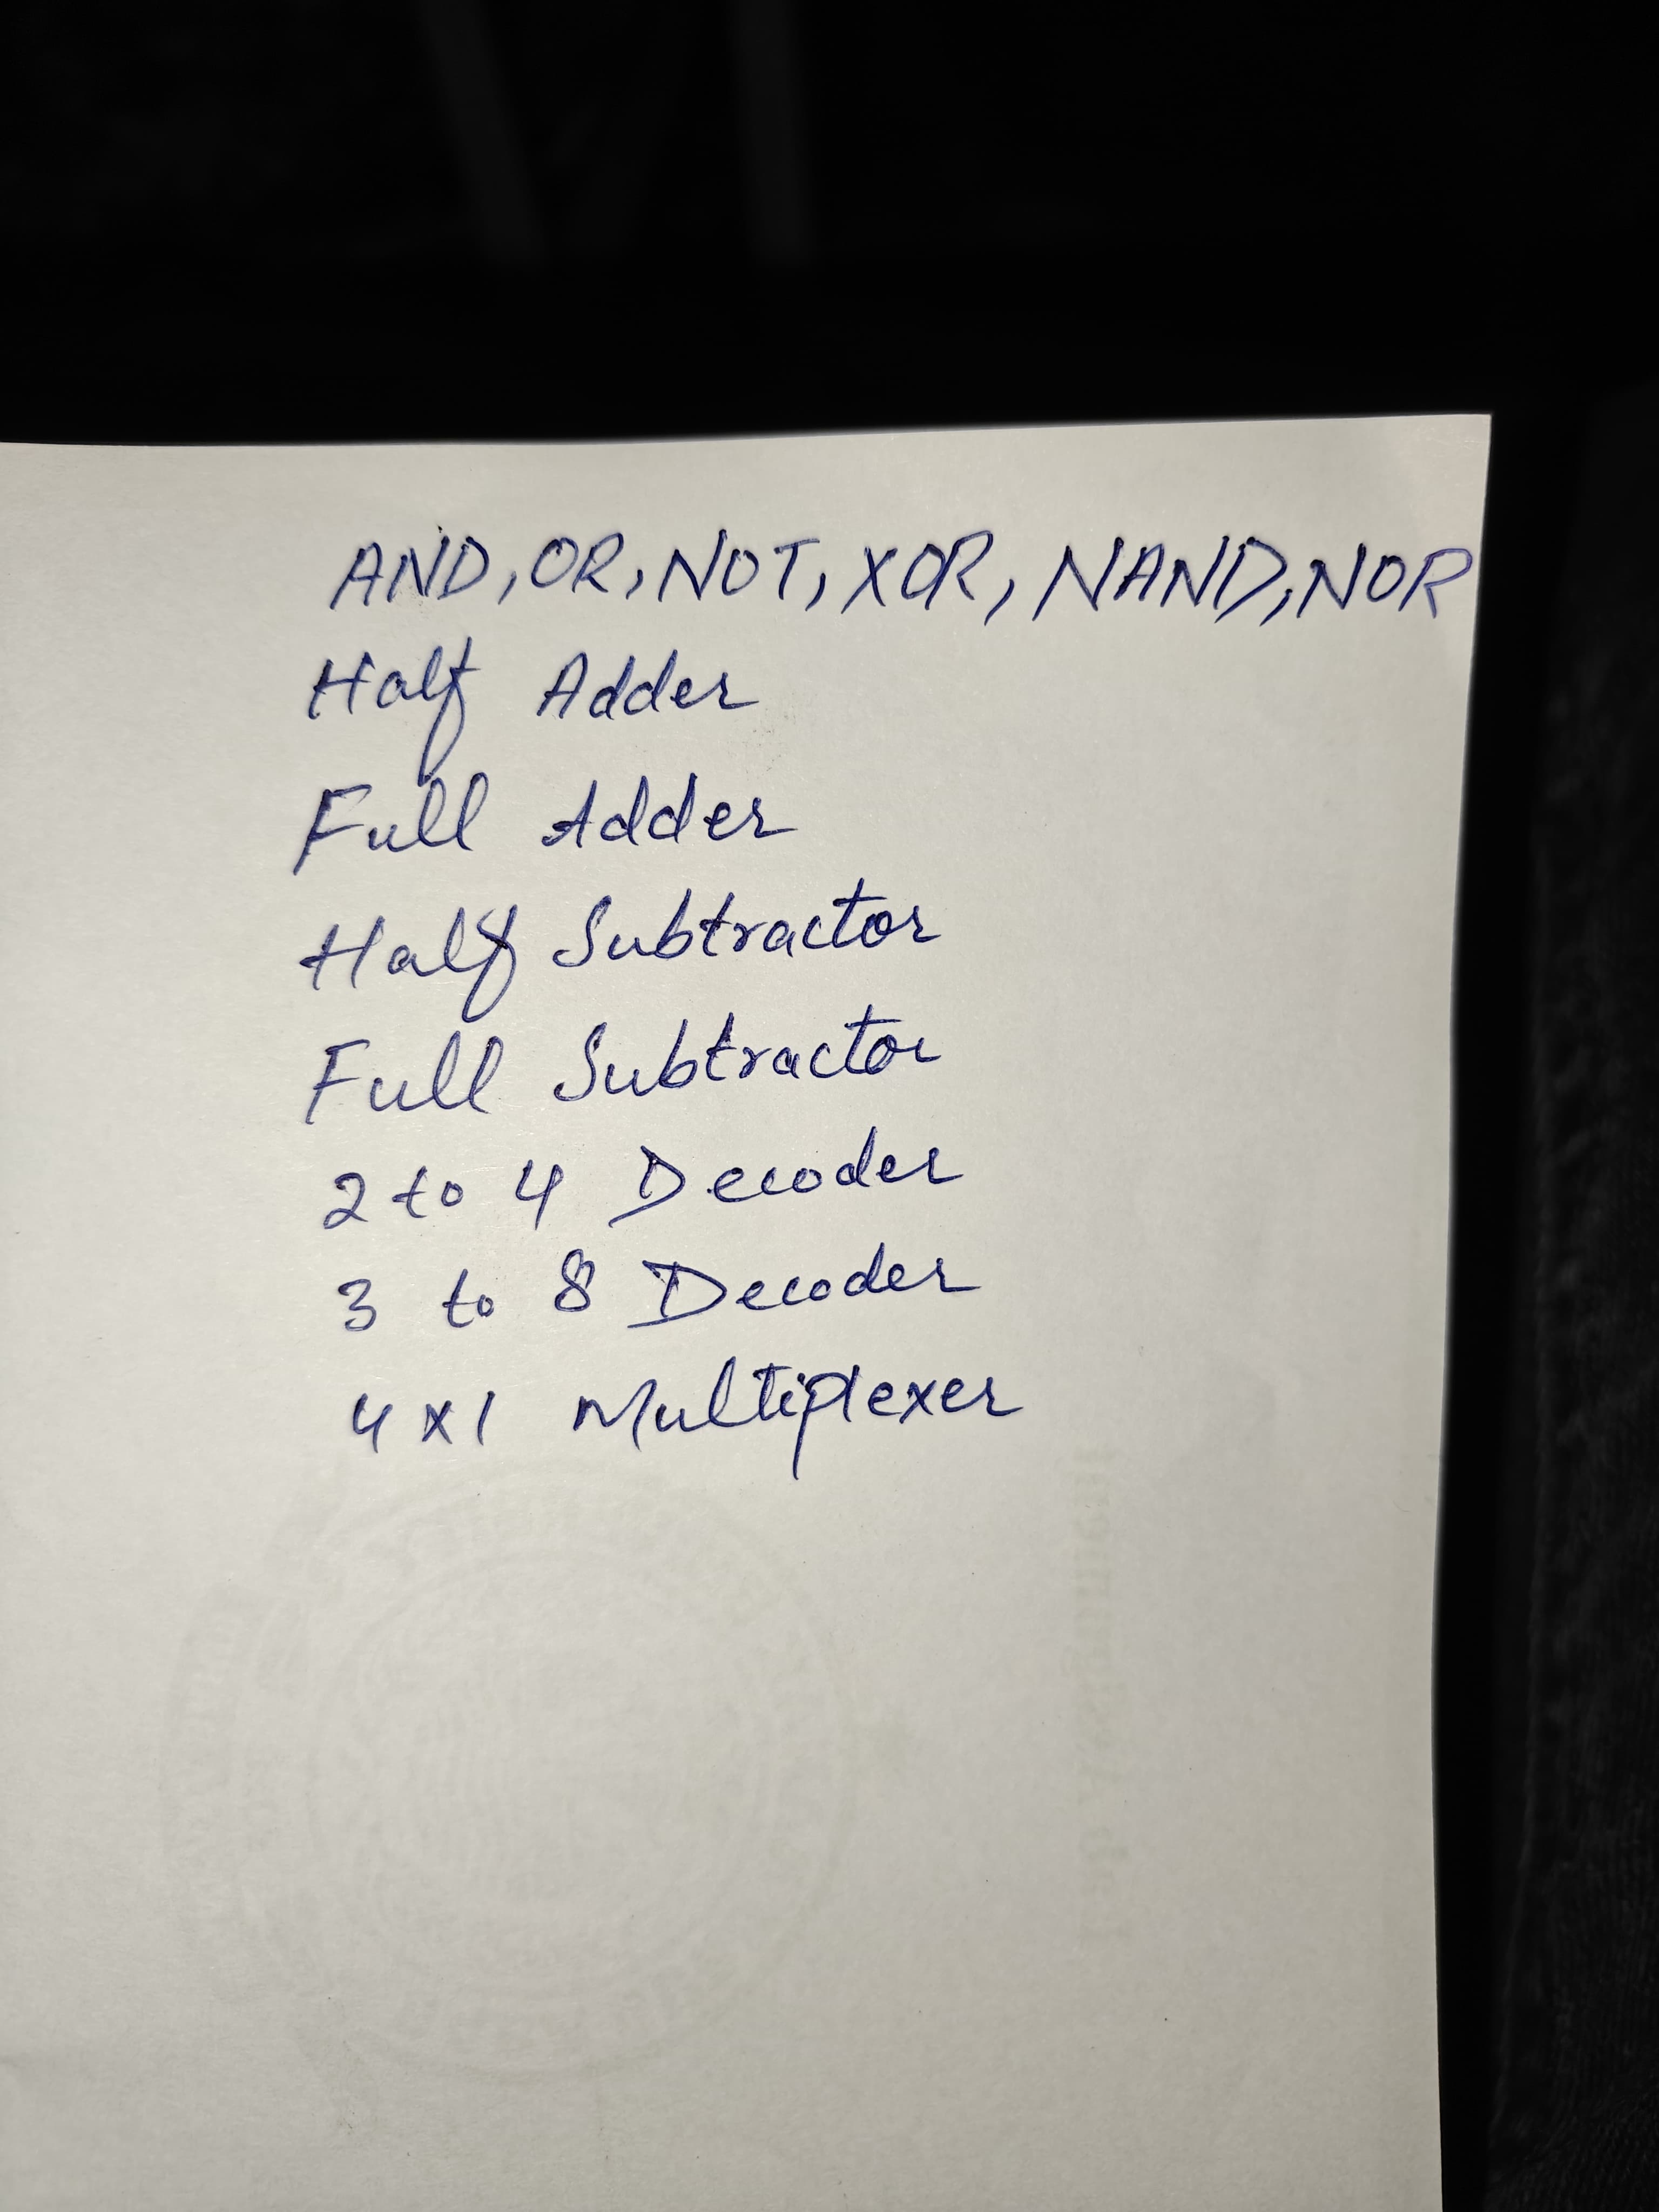 AND, OR, NOT, XOR, NAND, NOR
Half Adder
Full Adder
Half Subtractor
Full Subtractor
2 to 4 Decoder
3 to 8 Decoder
4x1 Multiplexer